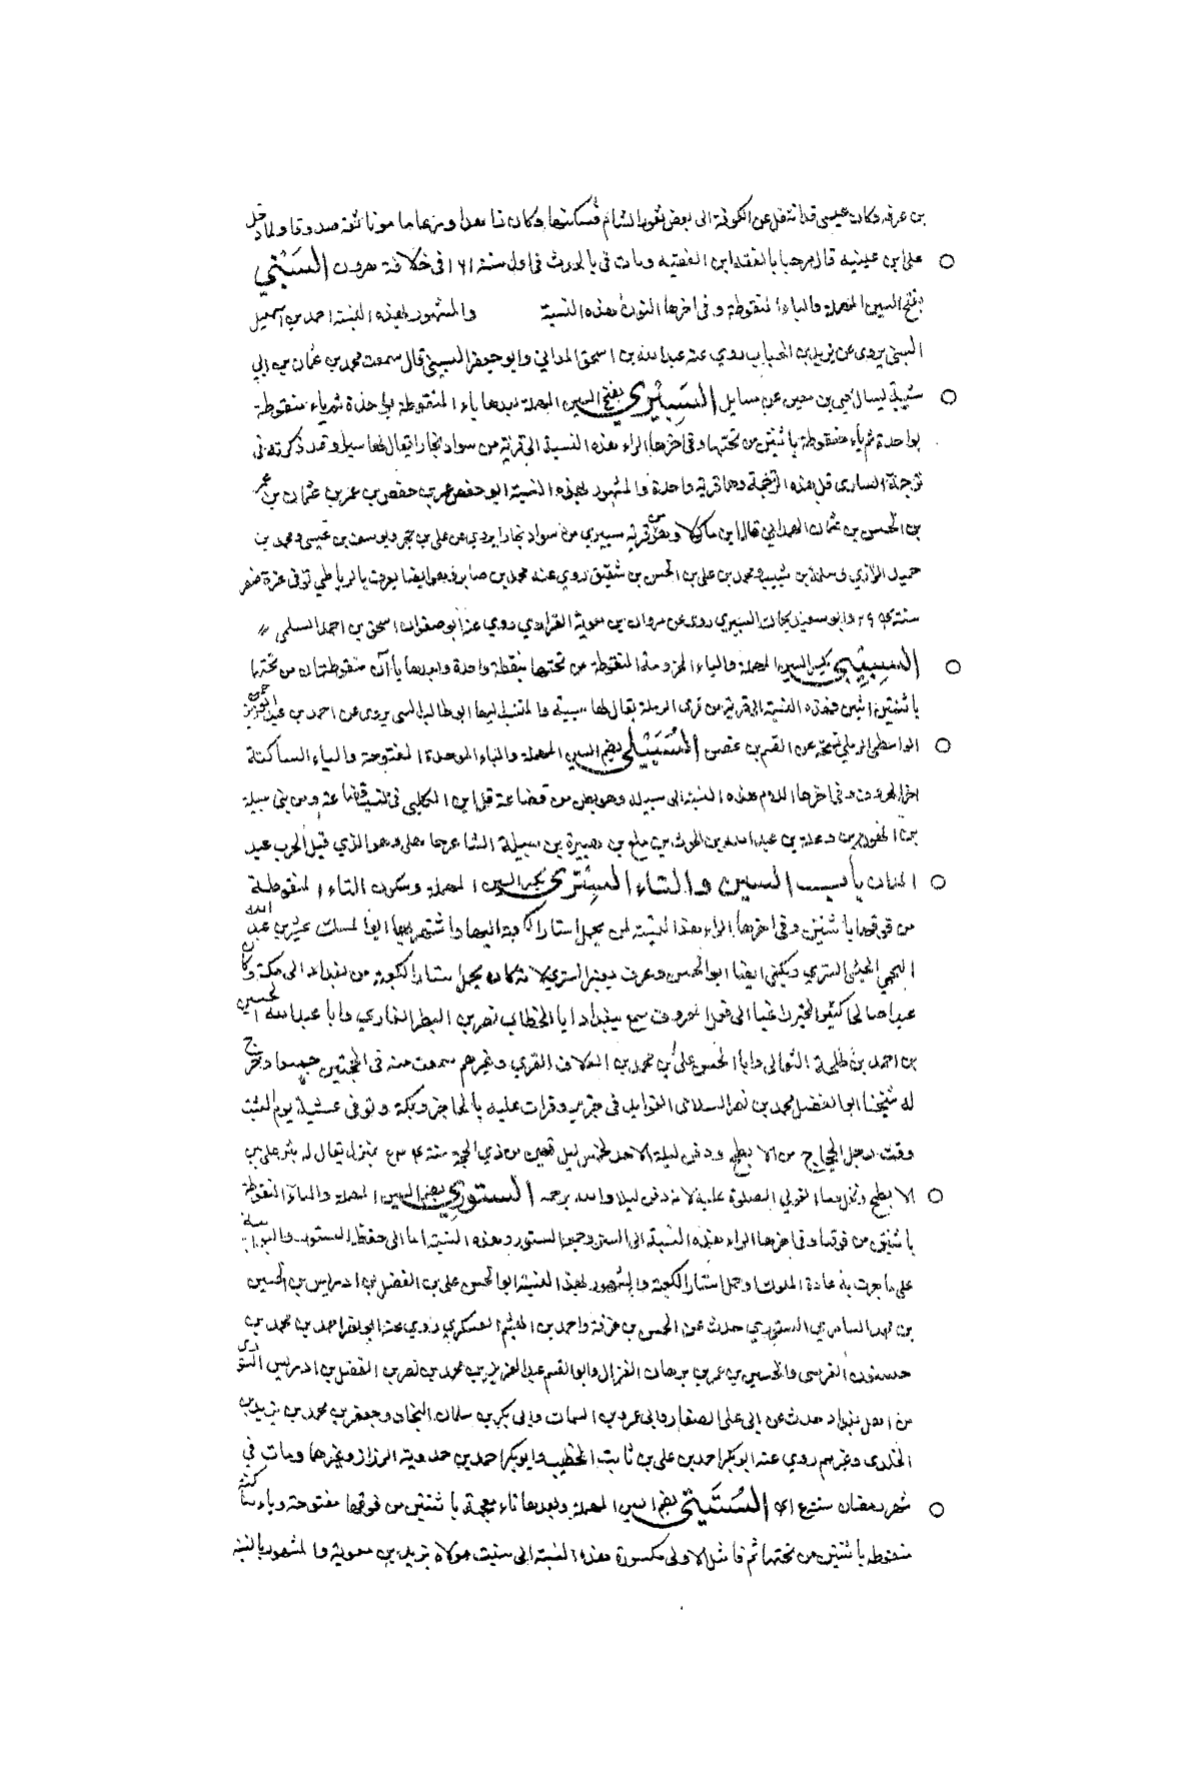 بن عرفه وكان عيسى قد انتقل عن الكوفة الى بعض ثغور الشام فسكنها وكان ثقة صدوقا ولما دخل
على ابن عيينه قال مرحبا بالفقه ابن الفقيه ومات في بالحدث في اول سنة ١٨١ في خلافة هرون السَبَني
بفتح السين المهملة والباء المنقوطة وفي اخرها النون هذه النسبة والمشهور بهذه النسبة احمد بن اسمعيل
السبني يروى عن زيد بن الحباب روي عنه عبد الله بن اسحق المدايني وابو جعفر السبيني قال سمعت محمد بن عثمان بن ابي
شيبة يسال يحيى بن معين عن مسايل السَبِيْري بفتح السين المهملة بعدها باء المنقوطة بواحدة ثم ياء منقوطة
بواحدة ثم ياء منقوطة باثنتين من تحتها وفي اخرها الراء هذه النسبة الى قرية من سواد بخارا يقال لها سبيرا وقد ذكرته في
ترجمة السارى قبل هذه الترجمة وهما قرية واحدة والمشهور بهذه النسبة ابو حفص عمر بن حفص بن عمر بن عثمان بن عمر
بن الحسن بن عثمان الهمداني قال ابن ماكولا وهو من قرية سبيري من سواد بخارا يروي عن علي بن حجر ويوسف بن عيسى ومحمد بن
حميد الرازي وسلمة بن شبيب ومحمد بن علي بن الحسن بن شقيق روي عنه محمد بن صابر وهو ايضا يعرف بالرباطي توفى غرة صفر
سنة ٢٩٤ وابو سعيد السبيري روى عن مروان بن معوية الفزاري روي عنه ابو صفوان اسحق بن احمد السلمي
السِبيْيي بكسر السين المهملة والباء المنقوطة من تحتها بنقطة واحدة وبعدها ياآن منقوطتان من تحتها
باثنتين اثنتين هذه النسبة الى قرية من قرى الرملة يقال لها سبية والمنتسب اليها ابو طالب السبيي يروى عن احمد بن عبد العزيز
الواسطي الرملي نسخته عن القسم بن غصن السُبَيْلي بضم السين المهملة والباء الموحدة المفتوحة والياء الساكنة
اخر الحروف وفي اخرها اللام هذه النسبة الى سبيلة وهو بطن من قضاعة قال ابن الكلبي في نسب قضاعة ومن بني سبيلة
بن الهون وعلة بن عبد الله بن الحرث بن بلع بن هبيرة بن سبيلة الشاعر جاهلي وهو الذي قتل الحرب عبد
المدان باب السين والتاء السِتْري بكسر السين المهملة وسكون التاء المنقوطة
من فوقها باثنتين وفي اخرها الراء هذا النسبة لمن يحمل استار الكعبة اليها واشتهر بها ابو المسك عنبر بن عبد الله
النجمي الحبشي الستري ويكنى ايضا ابو الحسن وعرف بعنبر الستري لانه كان يحمل استار الكعبة من بغداد الى مكة وكان
عبدا صالحا كثير الخير راغبا الى فعل المعروف سمع ببغداد ابا الخطاب نصر بن البطر القاري وابا عبد الله الحسين
بن احمد بن طلحة النعالي وابا الحسن علي بن محمد بن العلاف المقري وغيرهم سمعت منه في الحجتين جميعا وخرج
له شيخنا ابو الفضل محمد بن ناصر السلامي الفوايد في جزوين وقرات عليه بالحاجر وبمكة وتوفي عشية يوم السبت
وقت رحيل الحجاج من الابطح ودفن ليلة الاحد لخمس ليال بقين من ذي الحجة سنة بمنزل يقال له بئر علي بن
الابطح ونزل بها لتولي الصلوة عليه لانه دفن ليلا والله يرحمه السِتوري بضم السين المهملة والتاء المنقوطة
باثنتين من فوقها وفي اخرها الراء هذه النسبة الى الستر وجمعه الستور وهذه النسبة اما الى حفظ الستور والبوابية
على ما جرت به عادة الملوك او حمل استار الكعبة والمشهور بهذه النسبة ابو الحسن علي بن الفضل بن ادريس بن الحسين
بن محمد السامري الستوري حدث عن الحسن بن عرفة واحمد بن الهيثم العسكري روي عنه ابو نصر احمد بن محمد بن
حسنون النرسي والحسين بن عمر بن برهان الغزال وابو القسم عبد العزيز بن محمد بن نصر بن الفضل بن ادريس الستوري
من اهل بغداد حدث عن ابي علي الصفار وابي عمرو بن السماك وابي بكر بن سلمان النجاد وجعفر بن محمد بن نصير
الخلدي وغيرهم روي عنه ابو بكر احمد بن علي بن ثابت الخطيب وابو بكر احمد بن حمدوية الرزاز وغيرهما ومات في
شهر رمضان سنة السُتَيْتي بضم السين المهملة وبعدها تاء معجمة باثنتين من فوقها مفتوحة وياء ساكنة
منقوطه باثنتين من تحتها ثم تا مثل الاولى مكسورة هذه النسبة الى ستيت مولاة يزيد بن معوية والمشهور بالنسبة